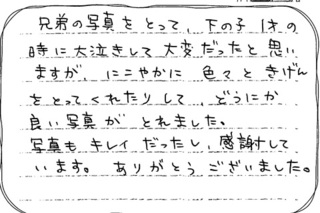 兄弟の写真をとって、下の子1才の
時に大泣きして大変だったと思い
ますが、にこやかに色々ときげん
をとってくれたりして、どうにか
良い写真がとれました。
写真もキレイだったし、感謝して
います。ありがとうございました。